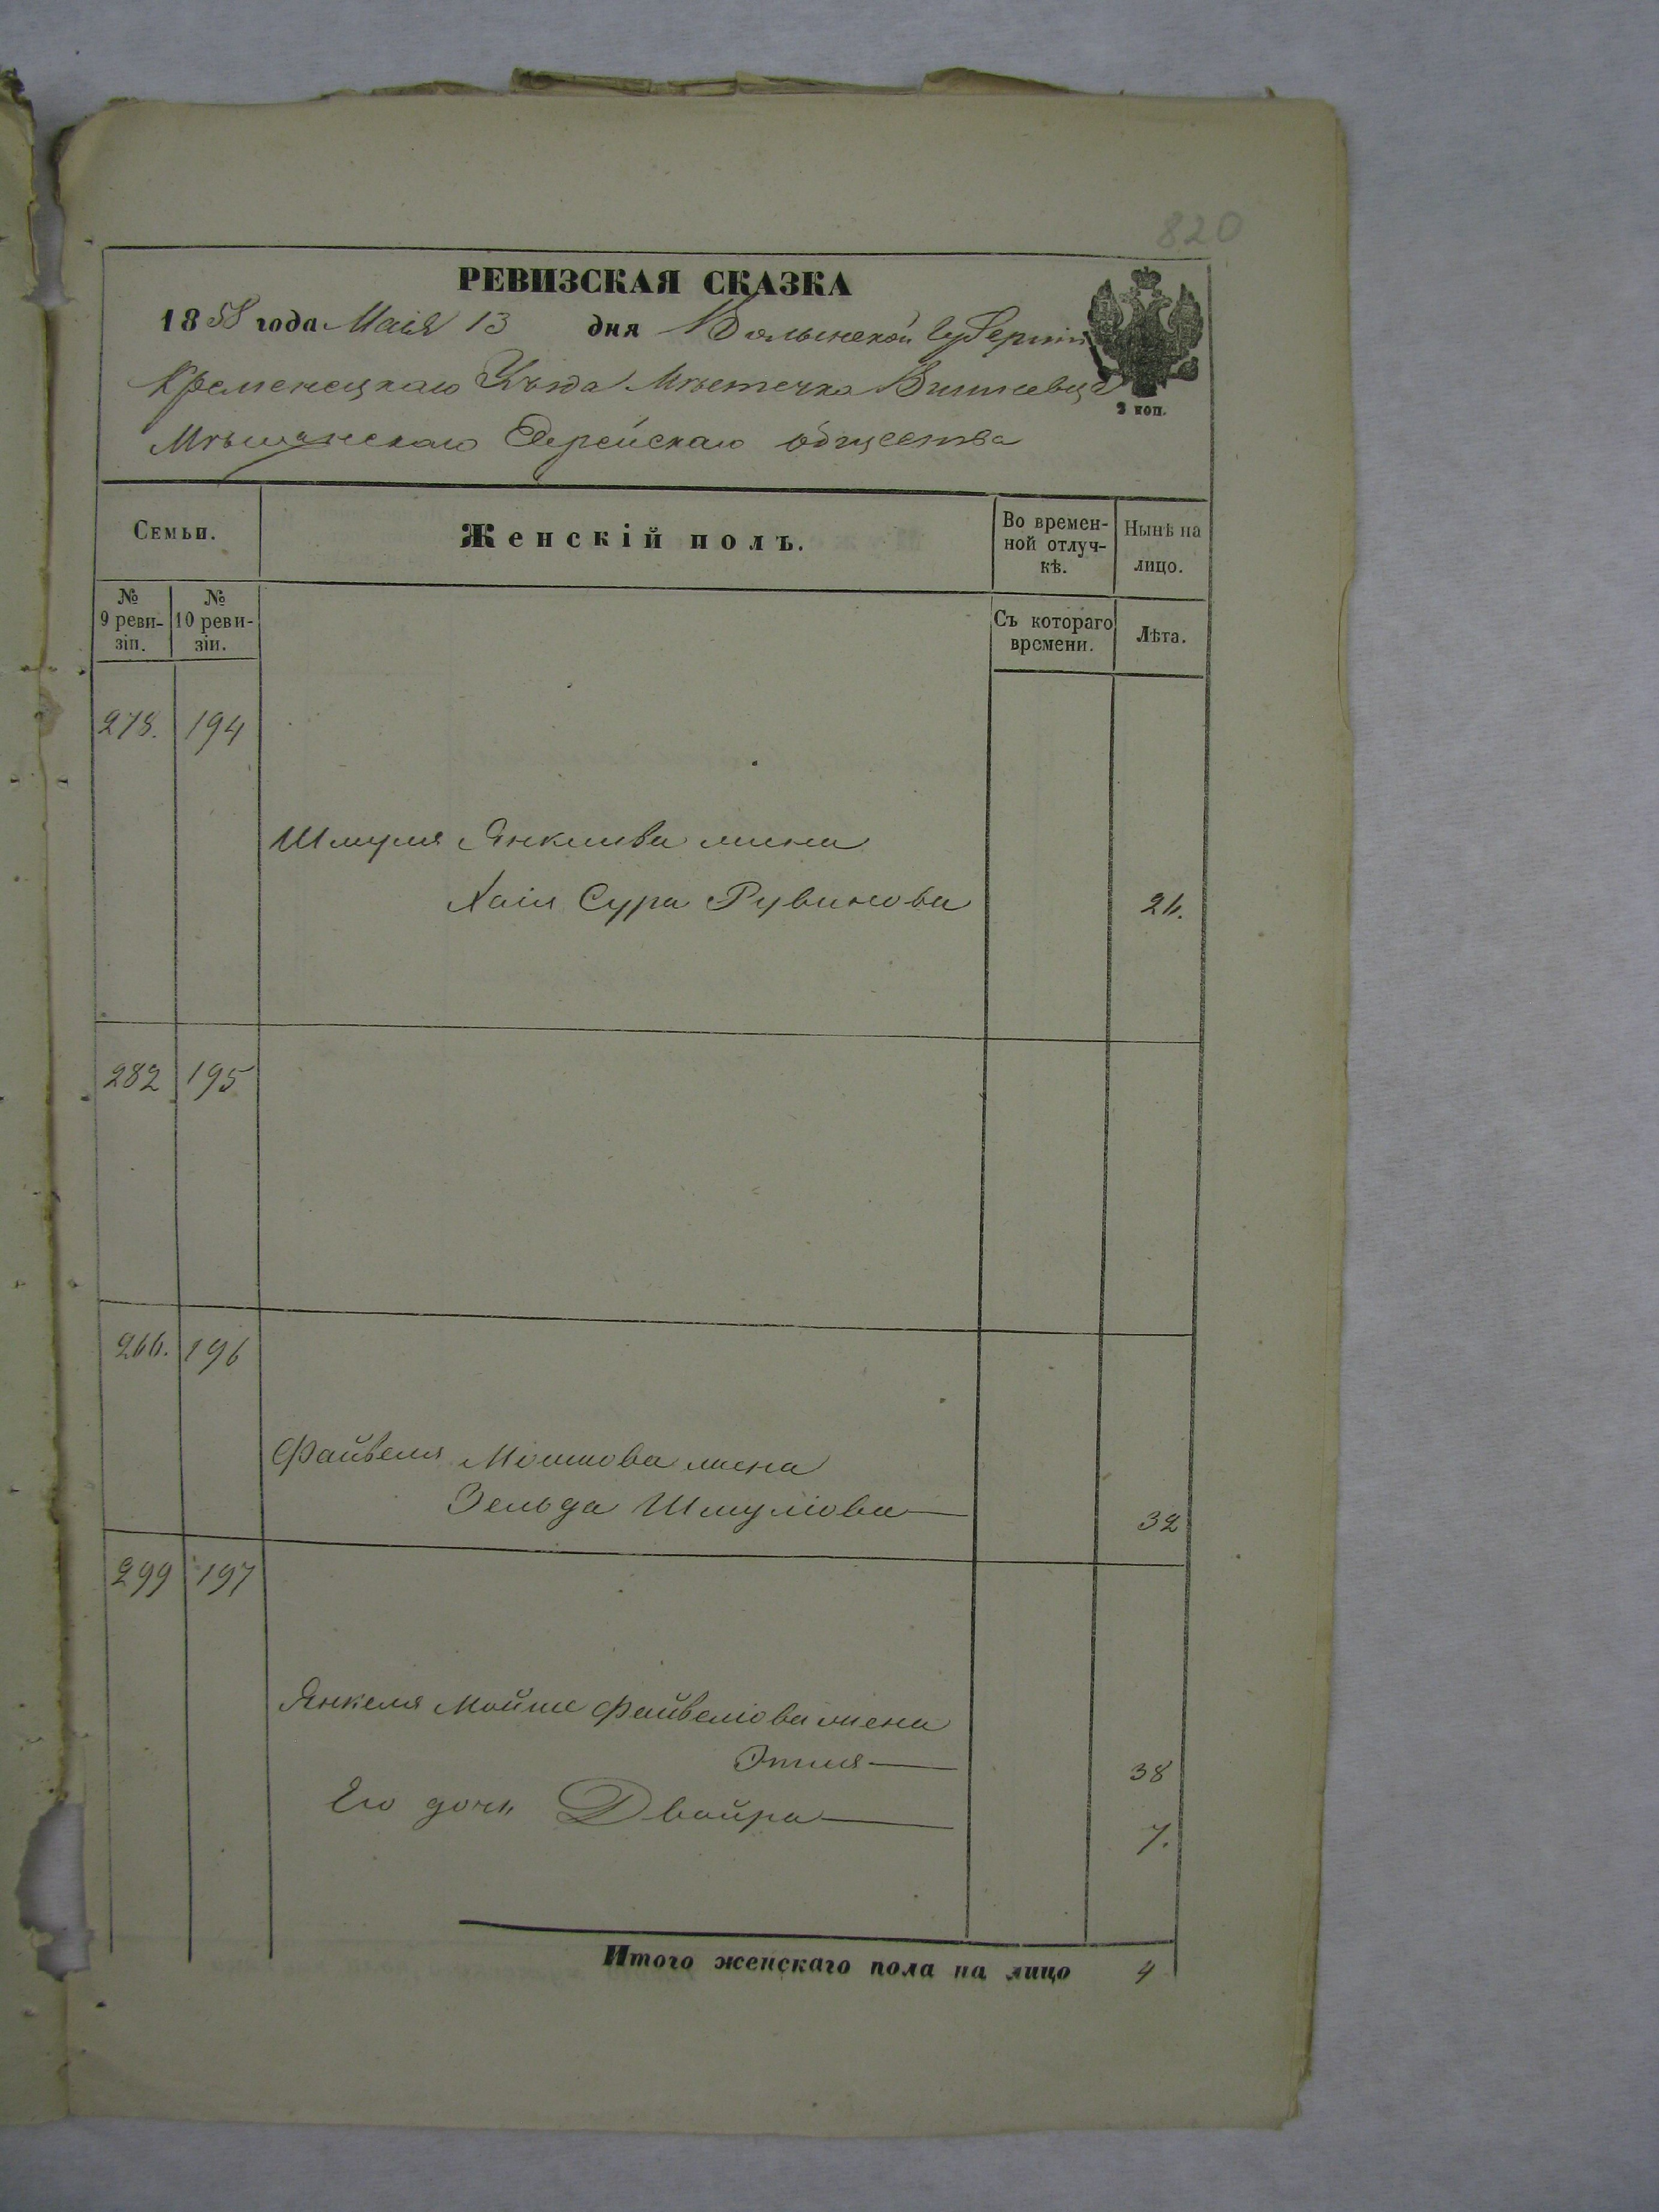 820
РЕВИЗСКАЯ СКАЗКА
1858 года Маія 13 дня Волынской Губерніи
Кременецкаго Уѣзда Мѣстечка Вишневца
2 коп.
Мѣщанскаго Еврейскаго общества
Семьи. Женскій полъ. Во временной отлучкѣ. Нынѣ на лицо.
№ 9 ревизіи. № 10 ревизіи. Съ котораго времени. Лѣта.
278. 194
Шмуля Янкелева жена
Хаія Сура Рувинова 26.
282 195
266. 196
Файвеля Мошкова жена
Зельда Шмуліова 32
299 197
Янкеля Мойше Файвеліова жена
Этля 38
Его дочь Двойра 7.
Итого женскаго пола на лицо 4